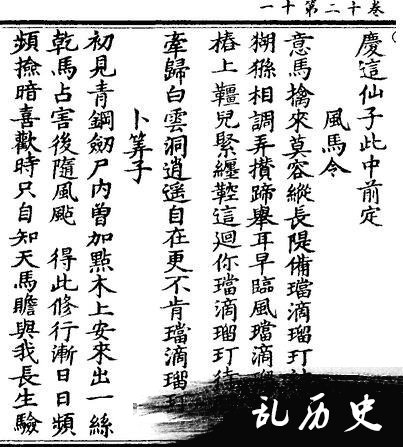 卷十二第十一
慶這仙子此中前定
風馬令
意馬擒來莫容縱長隄備璫滴瑠玎
猢猻相調弄攢蹄舉耳早臨風璫滴瑠
樁上韁兒緊纏鞚這迴你璫滴瑠玎待
牽歸白雲洞逍遥自在更不肯璫滴瑠玎
卜筭子
初見青鋼劒尸内曽加點木上安來出一絲
乾馬占害後隨風颭 得此修行漸日日頻
頻撿暗喜歡時只自知天馬瞻與我長生驗
乱历史